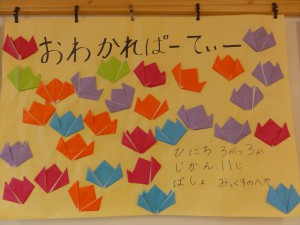 おわかれぱーてぃー
ひにち 3がつ3か
じかん 11じ
ばしょ みっくすのへや